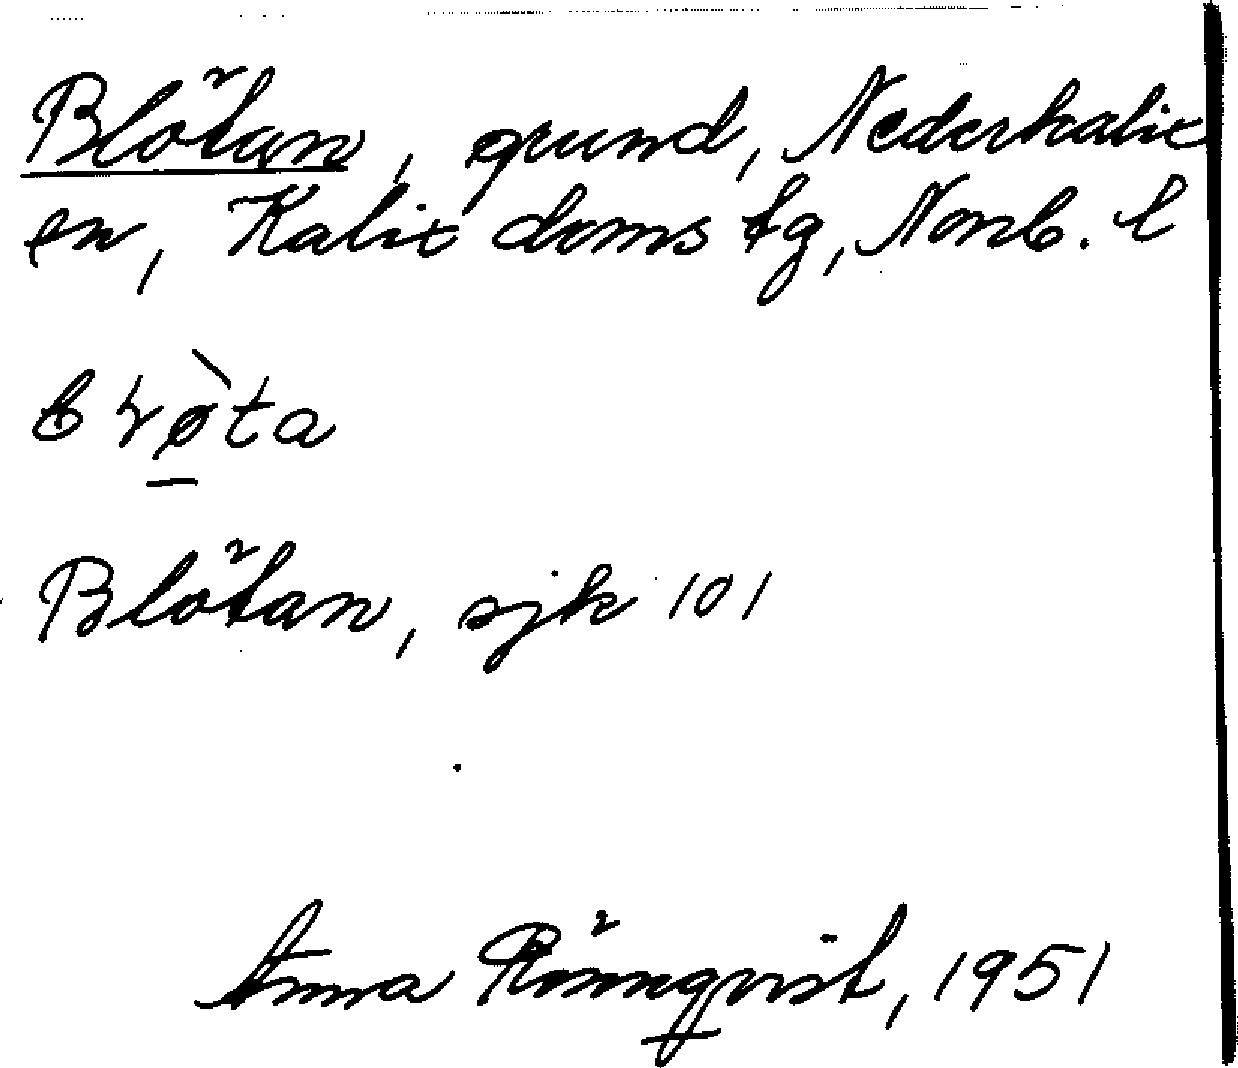 Blötan, grund, Nederkalix
en, Kalix doms tg, Norrb. l
bɽø̀ta
Blötan, sjk 101
Anna Rönnqvist, 1951